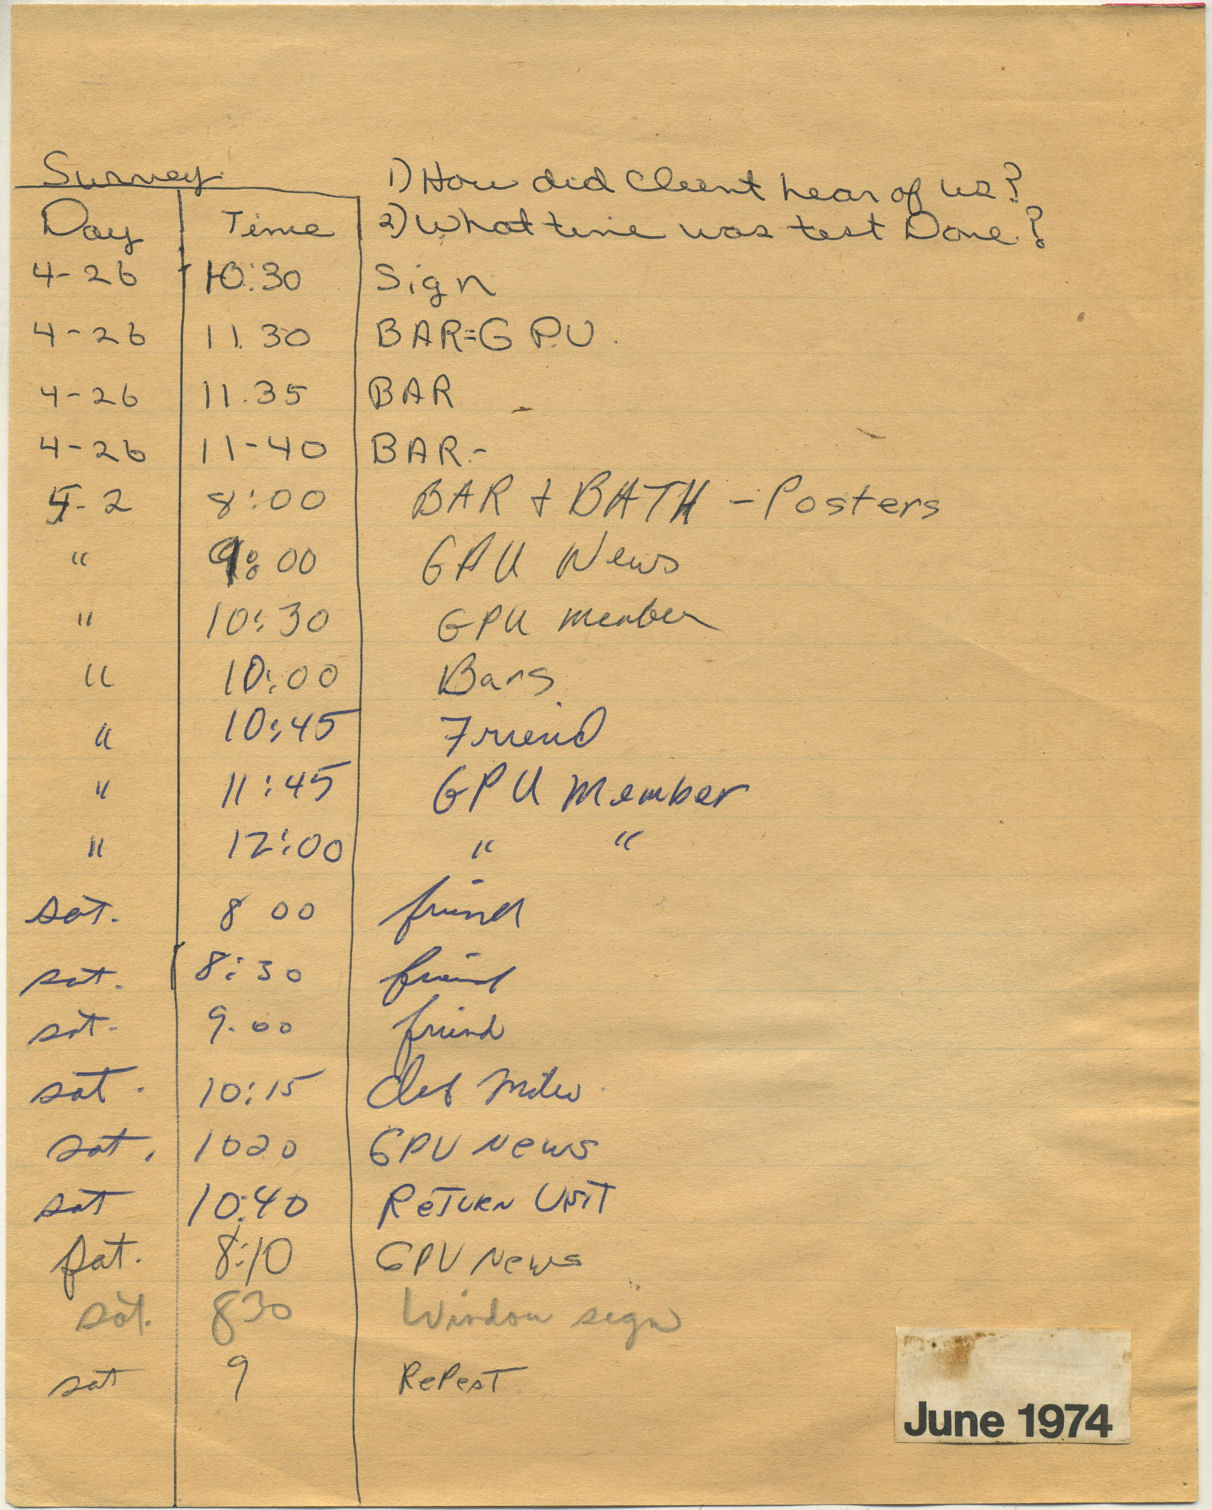 Survey
1) How did Client hear of us?
Day Time 2) What time was test Done?
4-26 10:30 Sign
4-26 11.30 BAR=GPU.
4-26 11.35 BAR
4-26 11-40 BAR-
5-2 8:00 BAR + BATH - Posters
" 9:00 GPU News
" 10:30 GPU member
" 10:00 Bars
" 10:45 Friend
" 11:45 GPU Member
" 12:00 " "
sat. 8 00 friend
sat. 8:30 friend
sat. 9.00 friend
sat. 10:15
sat. 1020 GPU News
sat 10:40 ReTURN VisiT
sat. 8:10 GPU News
sat. 830 Window sign
sat 9 RePeaT
June 1974